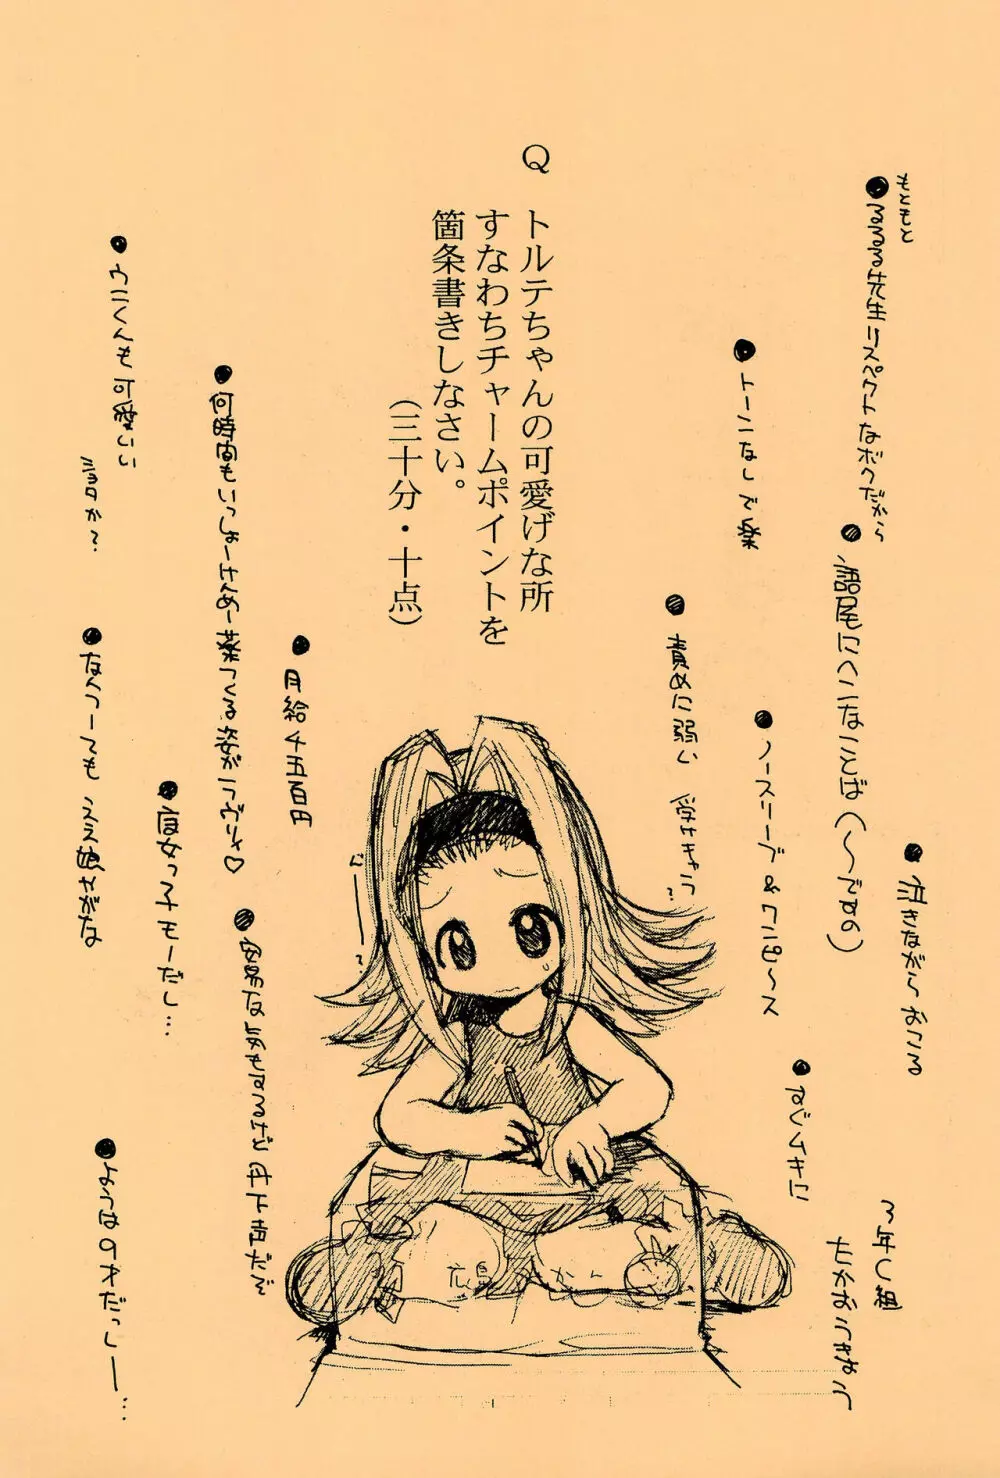 もともと
●るるる先生リスペクトなボクだから
●泣きながらおこる
3年C組
●語尾にへんなことば(〜ですの)
●すぐムキに
●トーンなしで楽
●ノースリーブ&ワンピ〜ス
●責めに弱い 受けキャラ?
Q トルテちゃんの可愛げな所
すなわちチャームポイントを
箇条書きしなさい。
(三十分・十点)
●月給千五百円
●安易な気もするけど丹下声だぞ
●何時間もいっしょーけんめー薬つくる姿がラヴリィ♡
●ウニくんも可愛いい
ショタか?
●なんつーても ええ娘やがな
●ようは9才だっしー…
広島